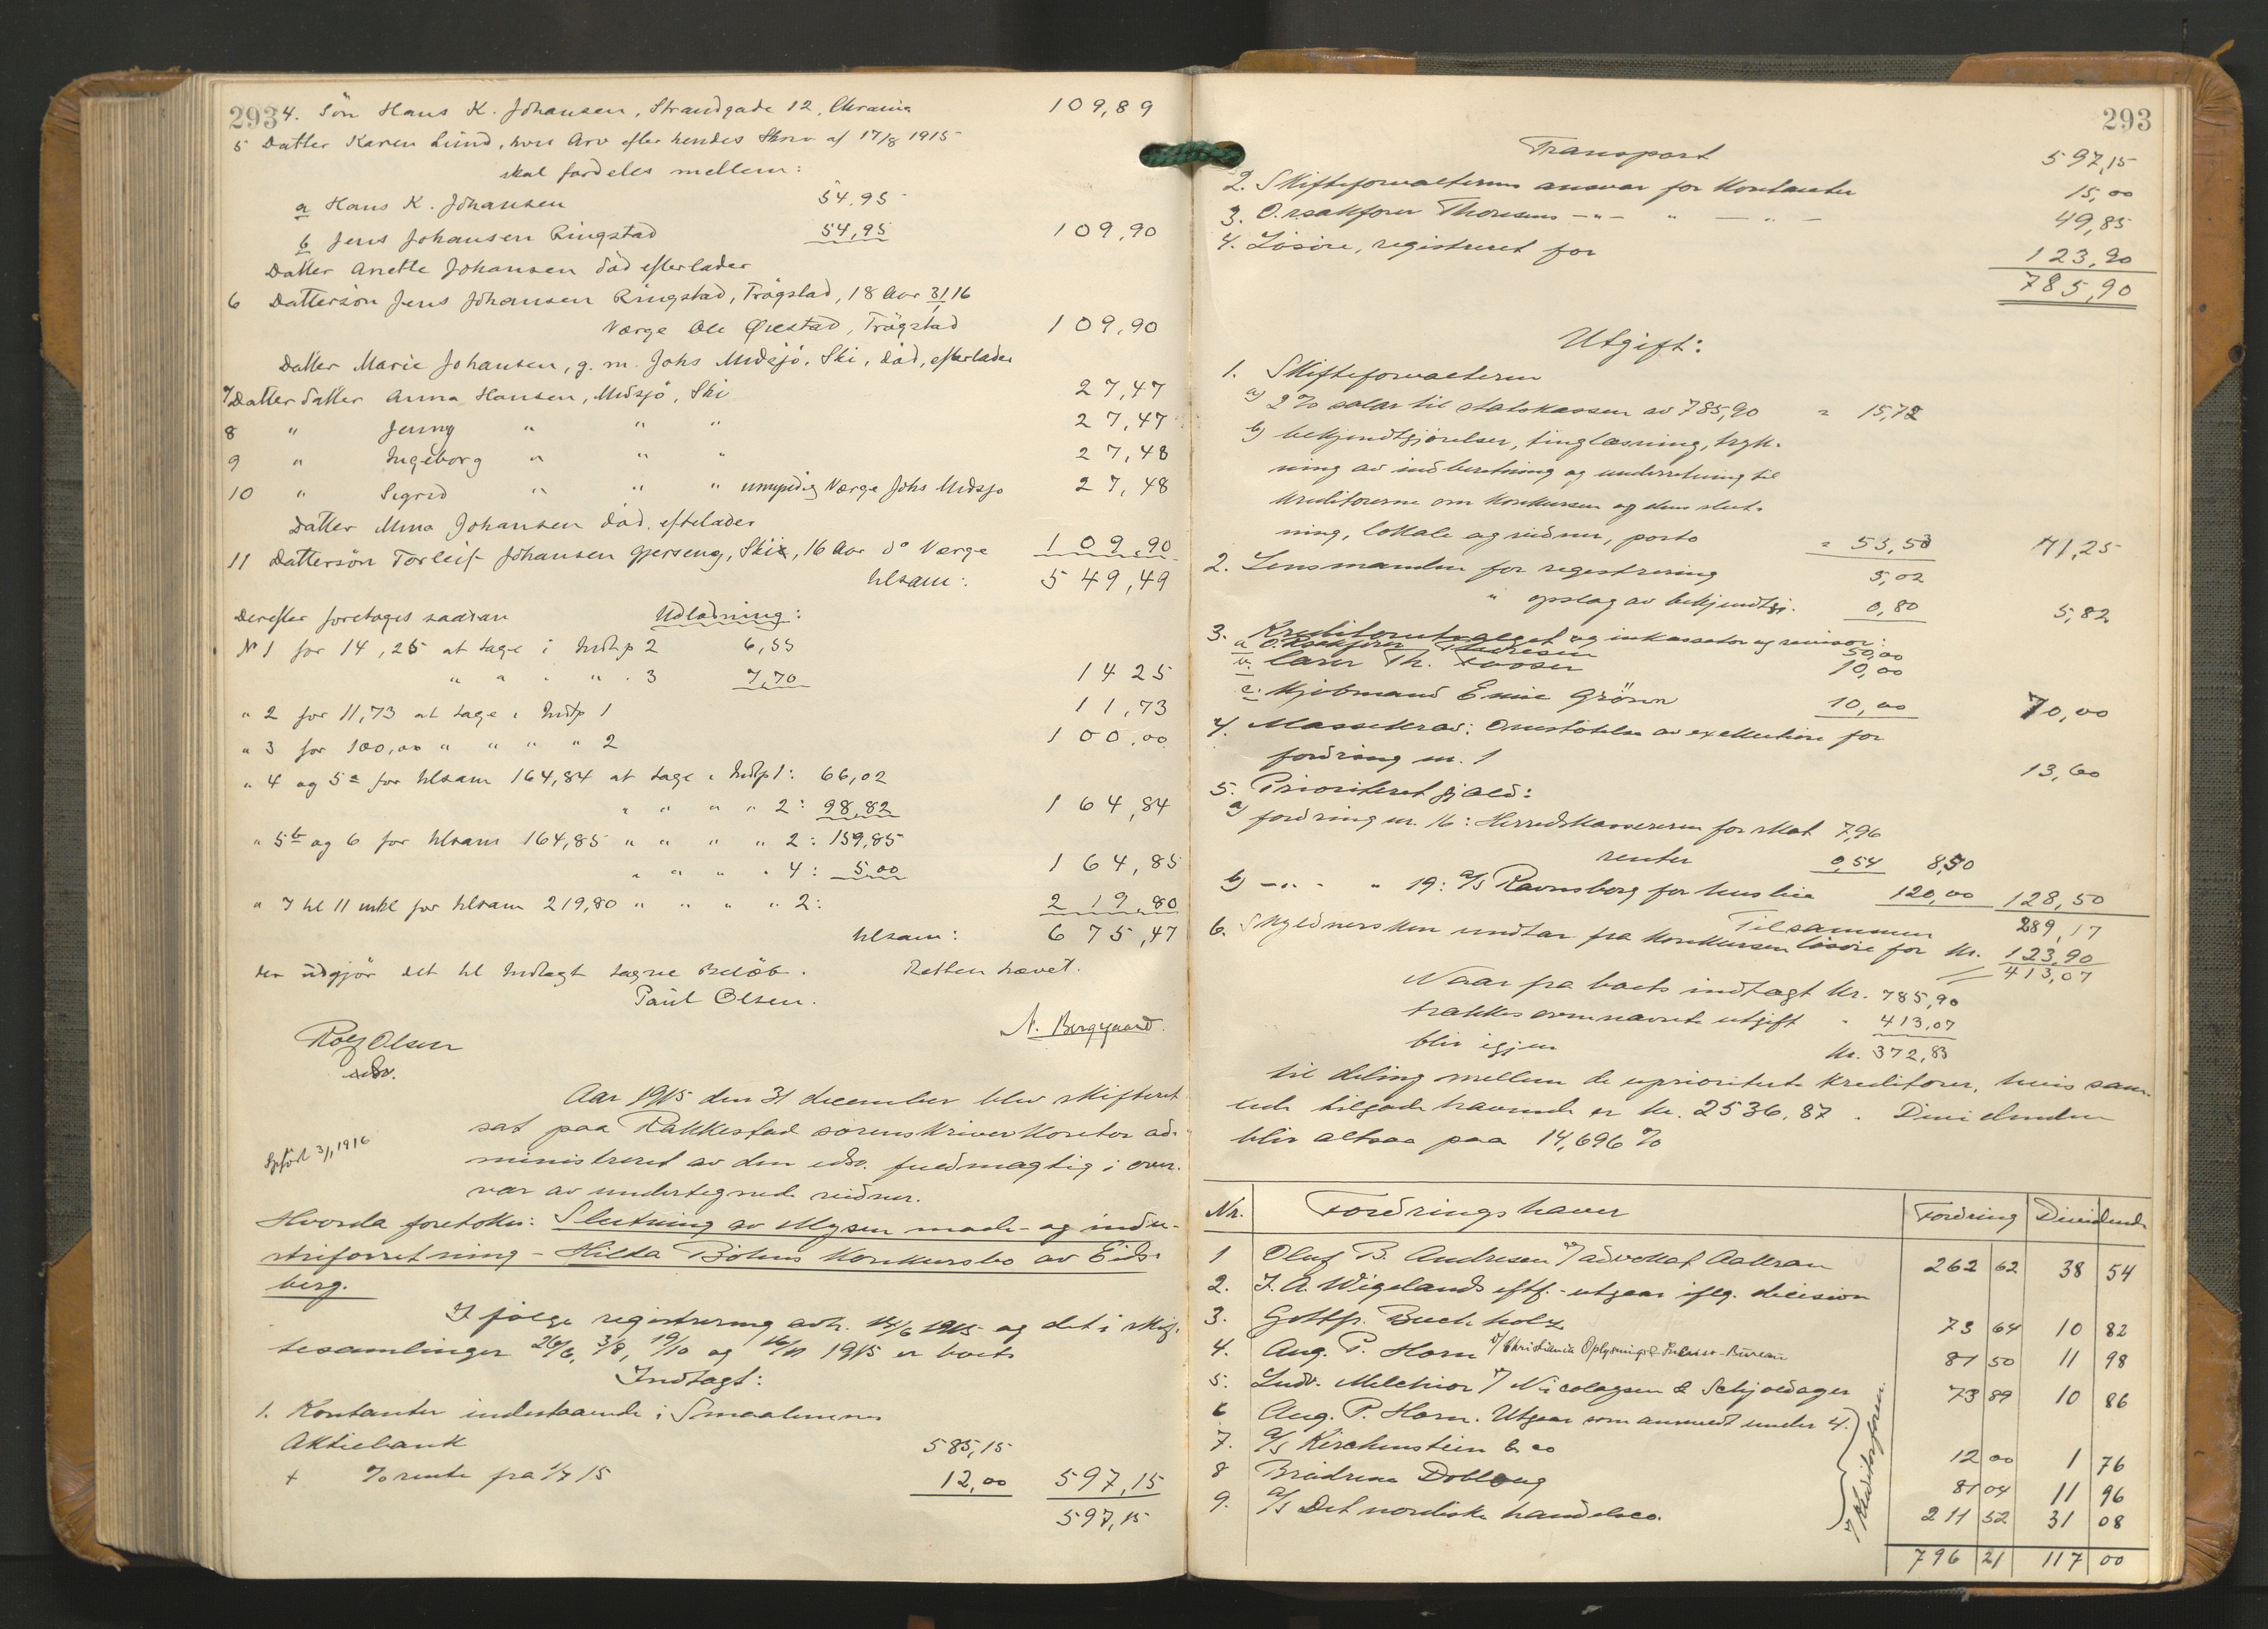 293
4. Sön Hans K. Johansen, Strandgade 12, Chrania 109,89
5 Datter Karen Lund, hvis Arv efter hendes Skriv af 17/8 1915
skal fordeles mellem:
a Hans K. Johansen 54,95
b Jens Johansen Ringstad 54,95 109,90
Datter Anette Johansen död efterlader
6 Dattersön Jens Johansen Ringstad, Trögstad, 18 Aar 3/1 16
Værge Ole Ørestad, Trögstad 109,90
Datter Marie Johansen, g. m. Johs Midsjö, Ski, död, efterlader
7 Datterdatter Anna Hansen, Midsjö, Ski 27,47
8 " Jenny " " " 27,47
9 " Ingeborg " " " 27,48
10 " Sigrid " " " umyndig Værge Johs Midsjo 27,48
Datter Mina Johansen död, eftelader
11 Dattersön Torleif Johansen Gjerseng, Ski, 16 Aar do Værge 109,90
tilsam: 549,49
Derefter foretoges saadan Udlodning:
No 1 for 14,25 at tage i Indtp 2 6,55
" " " " . 3 7,70 14 25
" 2 for 11,73 at tage i Indtp 1 11,73
" 3 for 100,00 " " " " 2 100,00
" 4 og 5a for tilsam 164,84 at tage i Indtp 1: 66,02
" " " " 2: 98,82 164,84
" 5b og 6 for tilsam 164,85 " " " " 2: 159,85
" " " " 4: 5,00 164,85
" 7 til 11 inkl for tilsam 219,80 " " " " 2: 219,80
tilsam: 675,47
der udgjör det til Indtægt tagne Belöb. Retten hævet.
Paul Olsen.
N. Berggaard.
Rolf Olsen
edsv.
Aar 1915 den 31 december blev skifteret
sat paa Rakkestad sorenskriverkontor ad-
ministreret av den edsv. fuldmægtig i over-
vær av undertegnede vidner.
Spfört 3/1 1916
Hvorda foretokes: Slutning av Mysen mode- og indu-
striforretning - Hilda Böhns konkursbo av Eids-
berg.
I følge registrering avh. 14/6 1915 og det i skif-
tesamlinger 26/6, 3/8, 19/10 og 16/11 1915 er boets
Indtægt:
1. Kontanter indestaaende i Smaalenenes
Aktiebank 585,15
+ % rente fra 1/7 15 12,00 597,15
597,15
293
Transport 597,15
2. Skifteforvalterens ansvar for kontanter 15,00
3. O.rsakfører Thoresens -"- " - " - 49,85
4. Løsøre, registreret for 123,90
785,90
Utgift:
1. Skifteforvalteren
a) 2% salær til statskassen av 785,90 = 15,72
b) bekjendtgjørelser, tinglæsning, tryk-
ning av indberetning og underretning til
kreditorerne om konkursen og dens slut-
ning, lokale og vidner, porto = 55,53 71,25
2. Lensmanden for registrering 5,02
" opslag av bekjendtgj. 0,80 5,82
3. Kreditorutvalget og inkassator og revisor:
a O.Rsakfører Thoresen 50,00
b. Carer Th. Fosser 10,00
c. Kjøbmand Emil Grönn 10,00 70,00
4. Massekrav: Omstötelse av exekution for
fordring nr. 1 13,60
5. Prioritert gjæld:
a) fordring nr. 16: Herredskassereren for skat 7,96
renter 0,54 8,50
b) -"- " 19: A/S Ravnsborg for husleie 120,00 128,50
Tilsammen 289,17
6. Skyldnersken undtar fra konkursen løsøre for kr. 123,90
413,07
Naar fra boets indtægt kr. 785,90
trækkes ovennævnte utgift - 413,07
blir igjen kr. 372,83
til deling mellem de uprioriterte kreditorer, hvis sam-
lede tilgodehavende er kr. 2536,87. Dividenden
blir altsaa paa 14,696 %
Nr. Fordringshaver Fordring Dividende
1 Oluf B. Andresen v/ advokat Aakran 262 62 38 54
2. F. A. Wigelands eftf. - utgaar iflg. decision
3. Gottfr. Buchholz 73 64 10 82
4. Aug. P. Horn v/ Christiania Oplysnings & Inkasso-Bureau 81 50 11 98
5. Ludv. Melchior v/ Nicolaysen & Schjoldager 73 89 10 86
6 Aug. P. Horn. Utgaar som anmeldt under 4.
7. A/S Kirchenstein & co 12 00 1 76
8 Brödrene Dobloug 81 04 11 96
9. A/S Det nordiske handelsco. 211 52 31 08
v/ Kreditorforen.
796 21 117 00